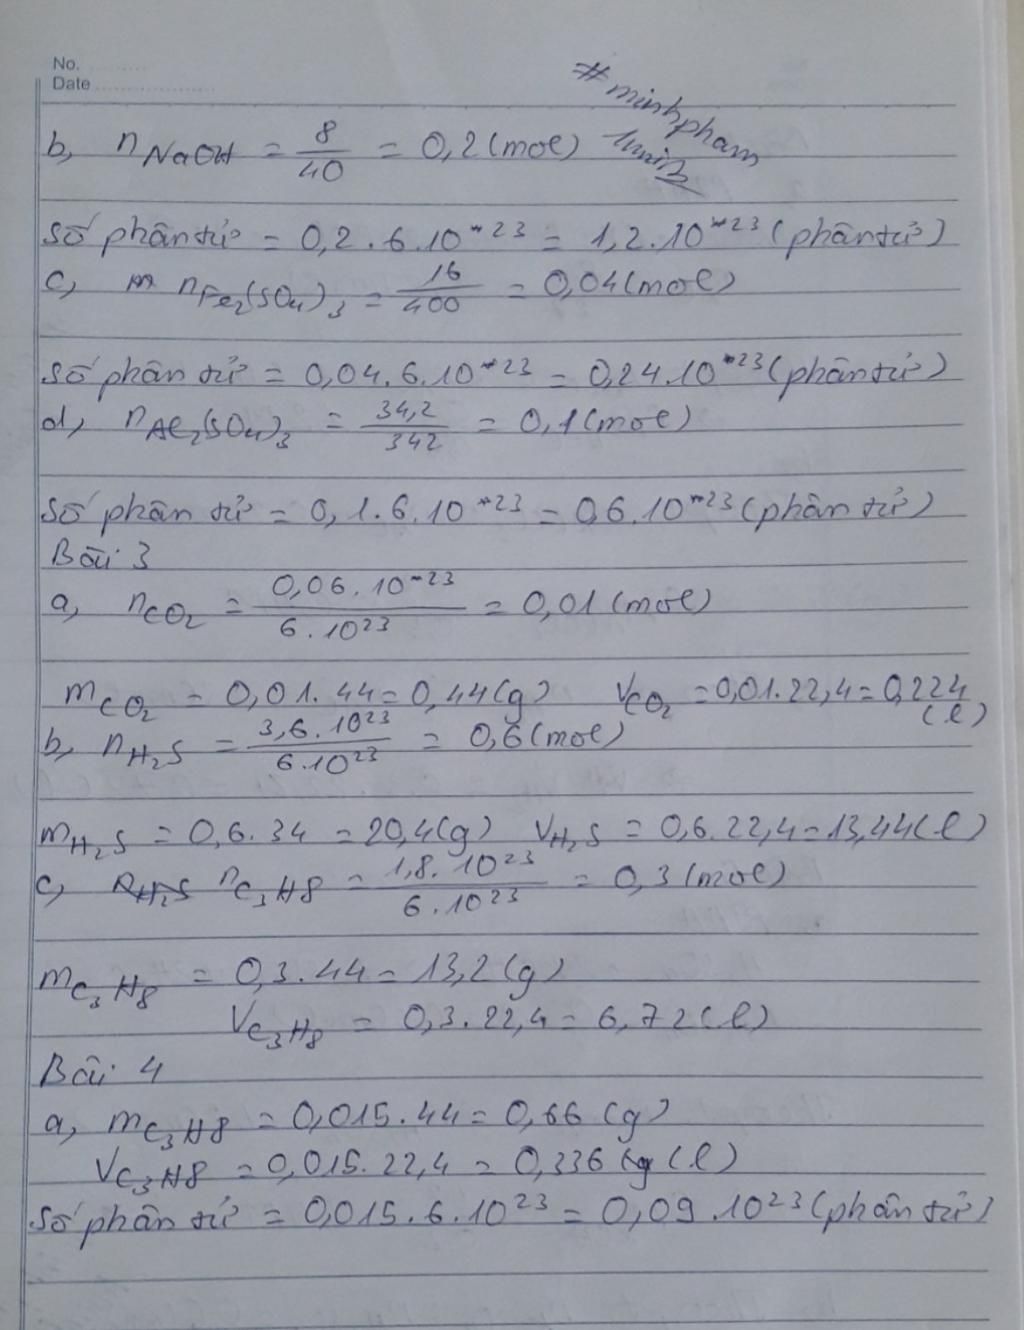 No.
Date
#minhpham
1minz
b, nNaOH = 8/40 = 0,2(mol)
Số phân tử = 0,2.6.10^-23 = 1,2.10^-23 (phân tử)
c, m nFe2(SO4)3 = 16/400 = 0,04(mol)
Số phân tử = 0,04.6.10^-23 = 0,24.10^-23 (phân tử)
d, nAl2(SO4)3 = 34,2/342 = 0,1(mol)
Số phân tử = 0,1.6.10^-23 = 0,6.10^-23 (phân tử)
Bài 3
a, nCO2 = 0,06.10^-23/6.10^23 = 0,01(mol)
mCO2 = 0,01.44=0,44(g) VCO2 = 0,01.22,4=0,224 (l)
b, nH2S = 3,6.10^23/6.10^23 = 0,6(mol)
mH2S = 0,6.34 = 20,4(g) VH2S = 0,6.22,4=13,44(l)
c, nH2S nC3H8 = 1,8.10^23/6.10^23 = 0,3(mol)
mC3H8 = 0,3.44=13,2(g)
VC3H8 = 0,3.22,4=6,72(l)
Bài 4
a, mC3H8 = 0,015.44=0,66(g)
VC3H8 = 0,015.22,4=0,336 (g (l)
Số phân tử = 0,015.6.10^23 = 0,09.10^23 (phân tử)